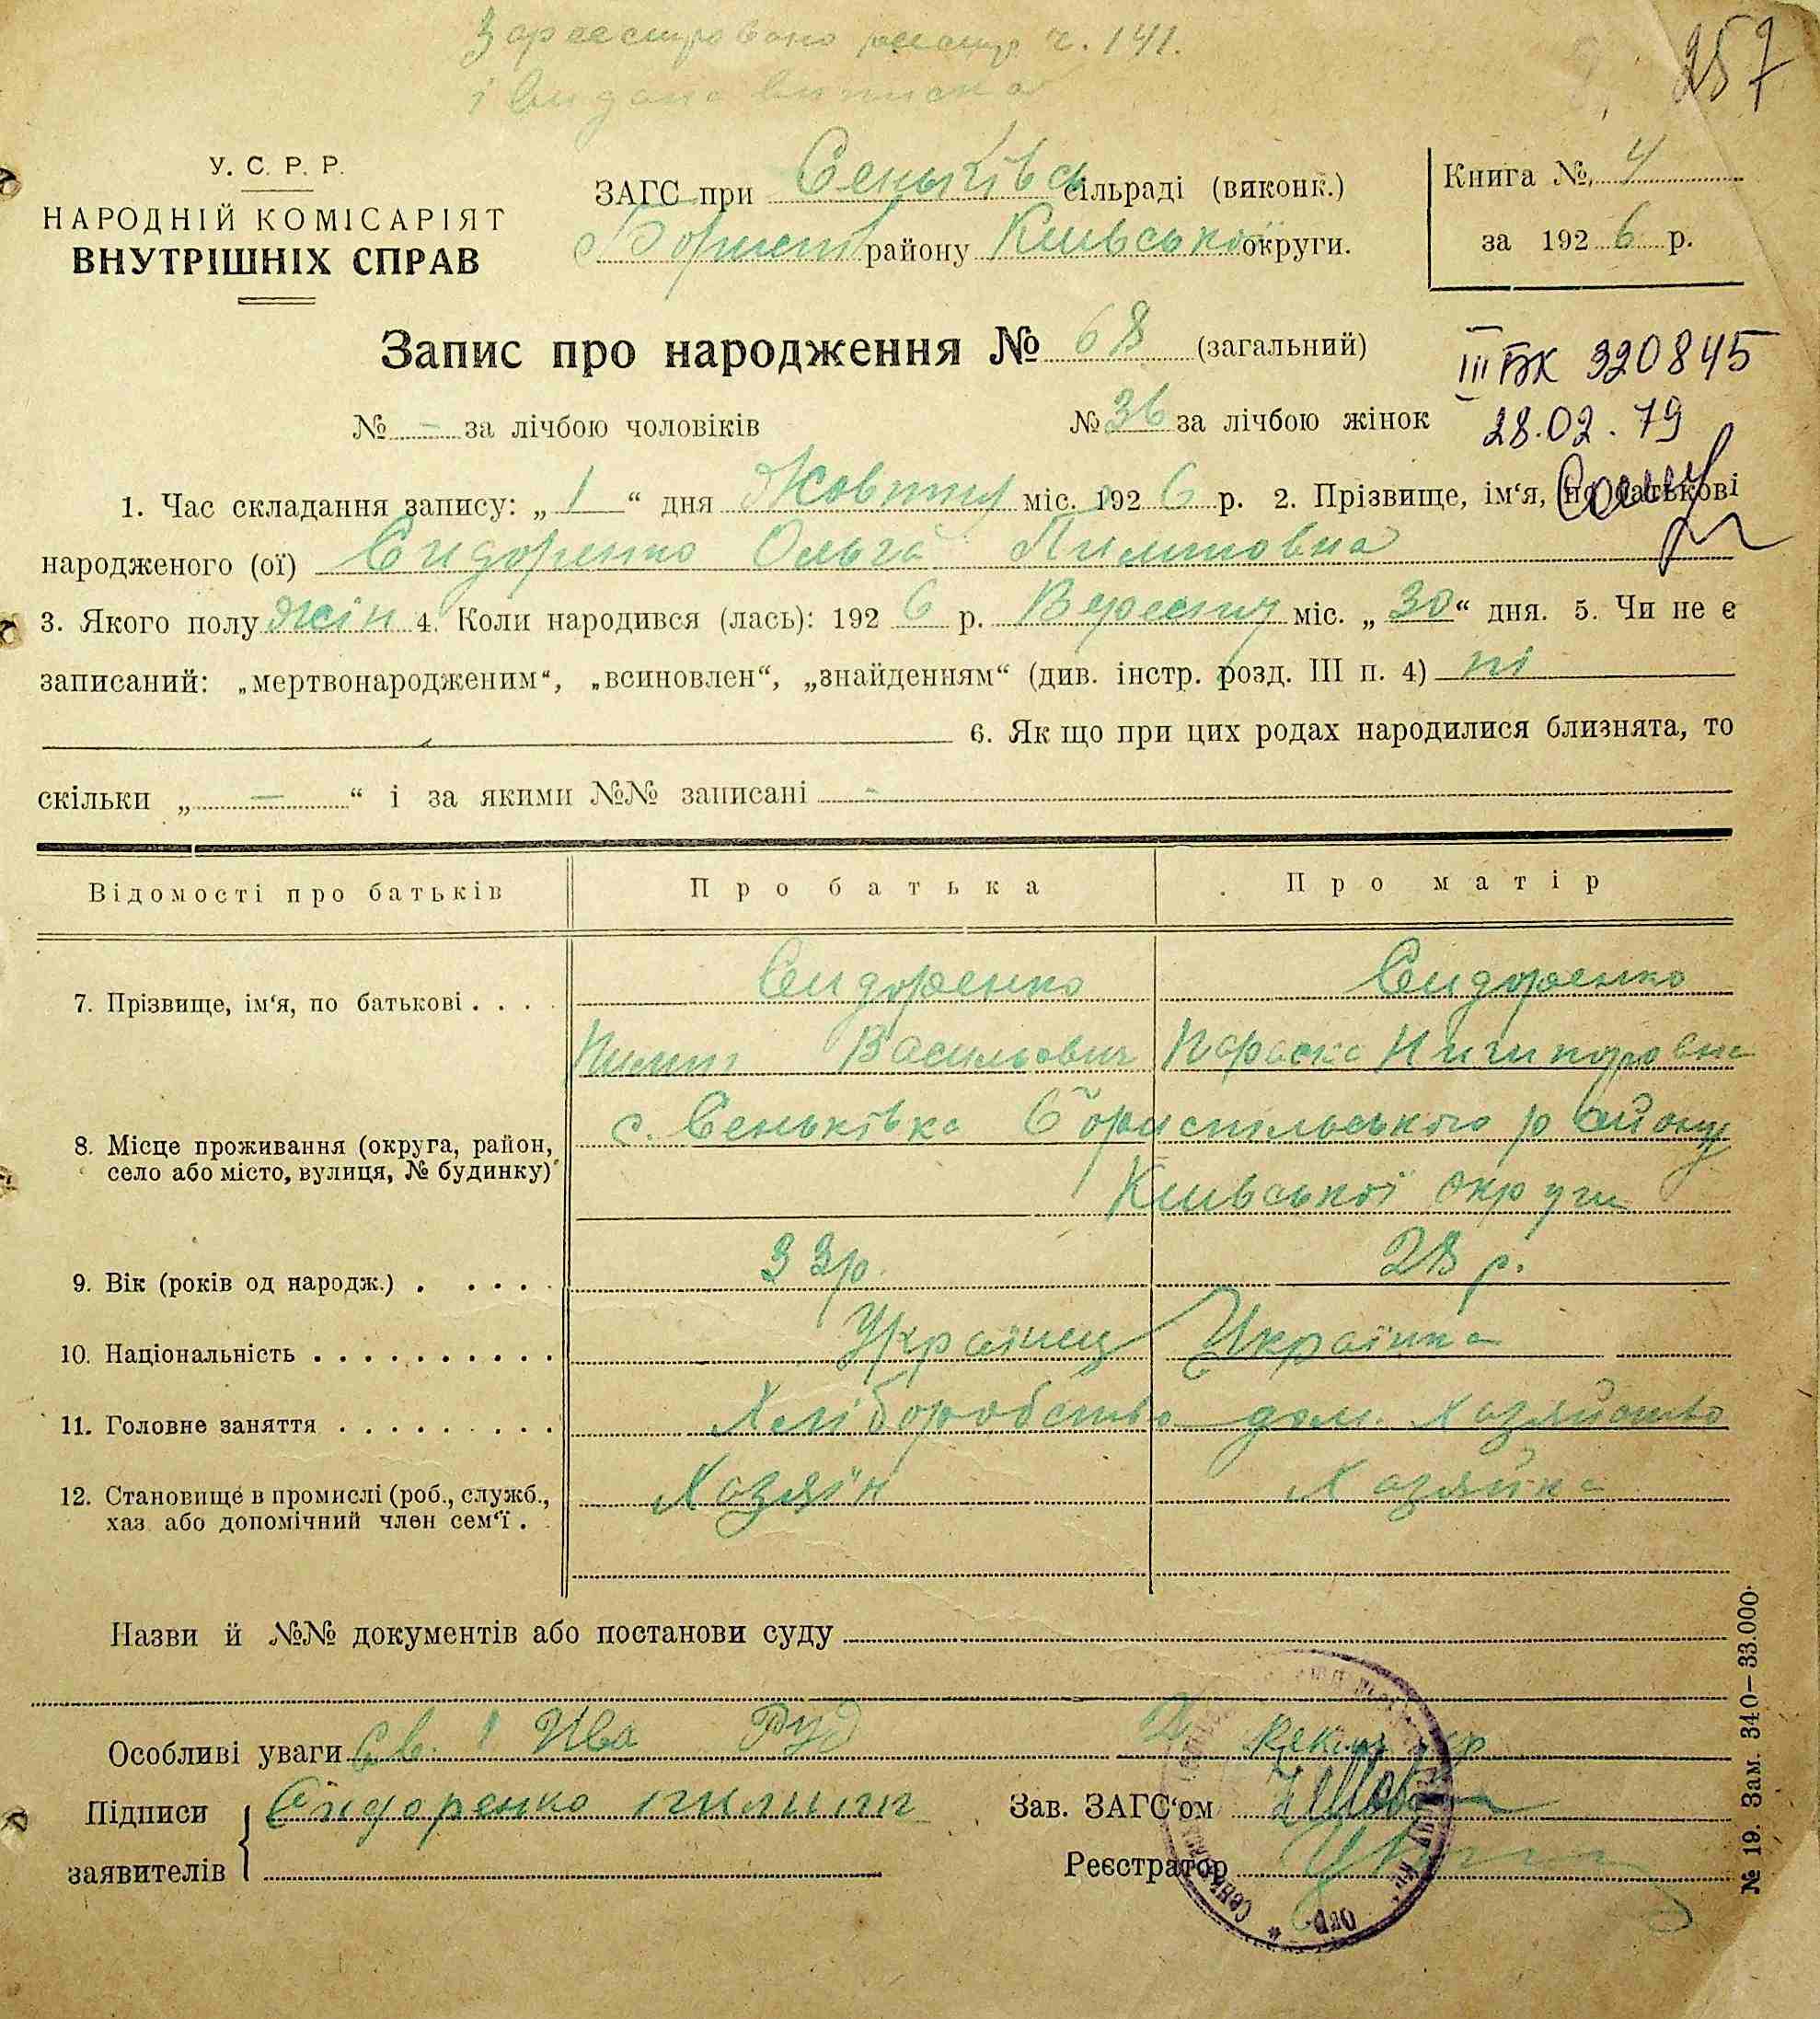 Зареєстровано реєстр ч. 141.
і видана виписка
257
У. С. Р. Р.
НАРОДНІЙ КОМІСАРІЯТ
ВНУТРІШНІХ СПРАВ
ЗАГС при Сеньківс сільраді (виконк.)
Борисп району Київської округи.
Книга №. 4
за 1926 р.
Запис про народження № 68 (загальний)
ІІІ БК 320845
№ - за лічбою чоловіків № 36 за лічбою жінок
28.02.79
1. Час складання запису: „1“ дня Жовтня міс. 1926 р. 2. Прізвище, ім‘я, по батькові
народженого (ої) Сидоренко Ольга Пилиповна
3. Якого полу жін 4. Коли народився (лась): 1926 р. Вересня міс. „30“ дня. 5. Чи не є
записаний: „мертвонародженим“, „всиновлен“, „знайденням“ (див. інстр. розд. III п. 4) ні
6. Як що при цих родах народилися близнята, то
скільки „ — “ і за якими №№ записані -
Відомості про батьків Про батька Про матір
7. Прізвище, ім‘я, по батькові . . . . Сидоренко Сидоренко
Пилип Васильович Параска Ничипоровна
8. Місце проживання (округа, район, с. Сеньківка Бориспільського району
село або місто, вулиця, № будинку) Київської округи
9. Вік (років од народж.) . . . . . 33р. 28 р.
10. Національність . . . . . . . . . . Українец Українка
11. Головне заняття . . . . . . . . . Хліборобство дом. хозяйство
12. Становище в промислі (роб., служб., Хозяїн Хозяйка
хаз або допомічний член сем‘ї . .
Назви й №№ документів або постанови суду
Особливі уваги Св. 1 Ива Руд 2
Підписи Сидоренко пилип Зав. ЗАГС‘ом
заявителів Реєстратор
№ 19. Зам. 340—33.000.